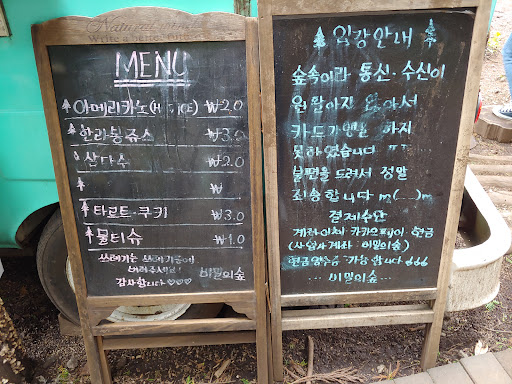 MENU
아메리카노(H, ICE) ₩2.0
한라봉쥬스 ₩3.0
삼다수 ₩2.0
₩
타르트·쿠키 ₩3.0
물티슈 ₩1.0
쓰레기는 쓰레기통에
버려주세요!
감사합니다♡♡♡ 비밀의숲
입장안내
숲속이라 통신·수신이
원활하지 않아서
카드가맹을 하지
못하였습니다 ㅠㅠ
불편을 드려서 정말
죄송합니다 m(__)m
결제수단
계좌이체 카카오pay이 현금
(사장님계좌 : 비밀의숲)
현금영수증 가능합니다 ㅎㅎㅎ
... 비밀의숲 ...